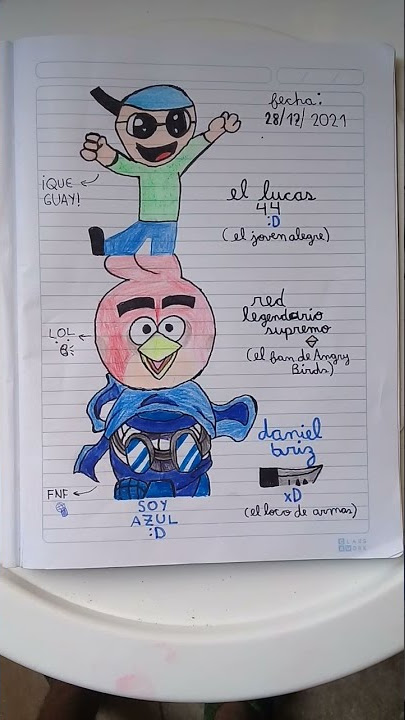 fecha:
28/12/2021
¡QUE
GUAY!
el lucas
44
:D
(el joven alegre)
red
legendario
supremo
(el fan de Angry
Birds)
LOL
daniel
briz
xD
(el loco de armas)
FNF
SOY
AZUL
:D